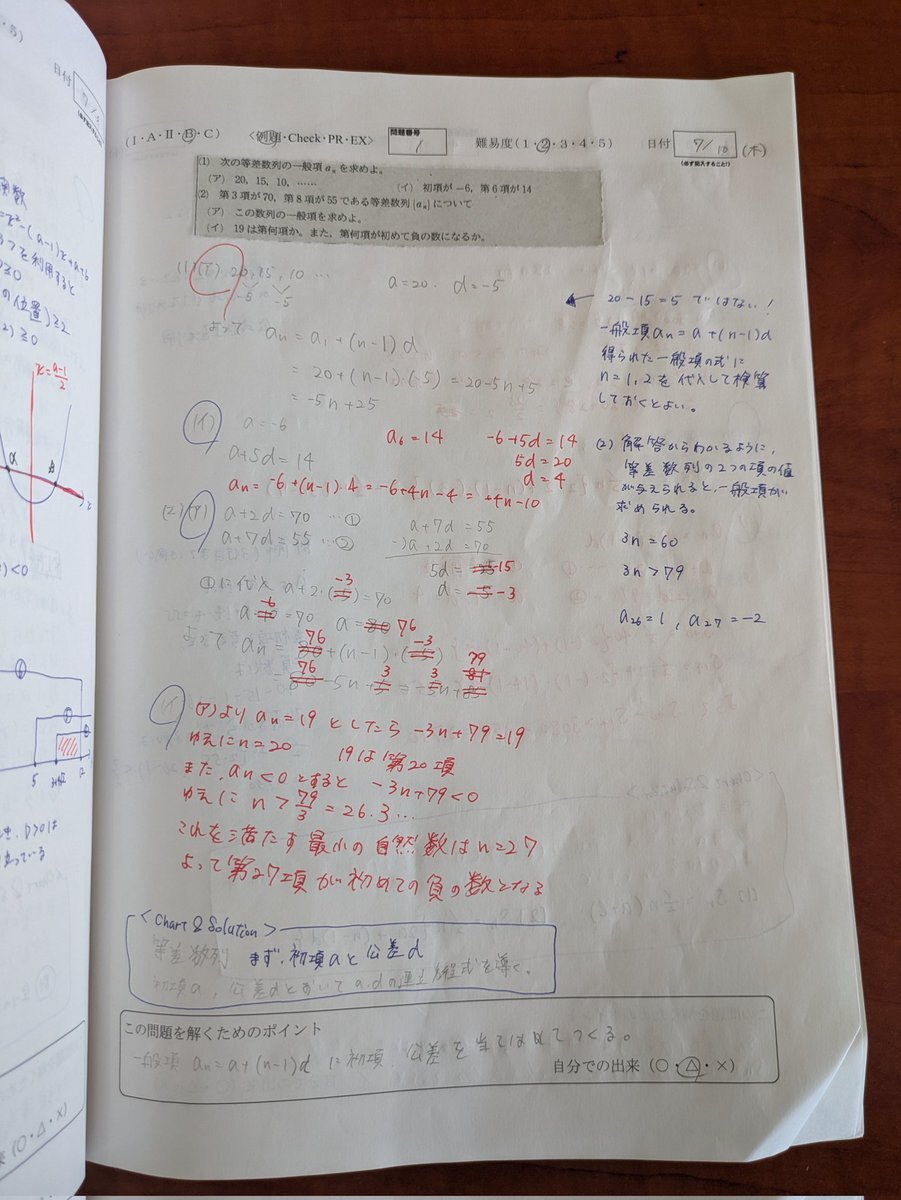 日付
(I・A・II・B・C) <例題・Check・PR・EX> 問題番号 1 難易度(1・2・3・4・5) 日付 7/10 (木)
(必ず記入すること!)
(1) 次の等差数列の一般項 aₙ を求めよ。
(ア) 20, 15, 10, …… (イ) 初項が −6, 第6項が 14
(2) 第3項が 70, 第8項が 55 である等差数列 {aₙ} について
(ア) この数列の一般項を求めよ。
(イ) 19 は第何項か。また, 第何項が初めて負の数になるか。
(1)(ア) 20, 15, 10 … a=20. d=-5
-5 -5
よって an = a₁ + (n-1)d
= 20+(n-1)・(-5) = 20-5n+5
= -5n+25
(イ) a=-6
a+5d=14
a₆=14 -6+5d=14
5d=20
d=4
an=-6+(n-1)・4=-6+4n-4=+4n-10
(2)(ア) a+2d=70 …①
a+7d=55 …②
a+7d=55
-)a+2d=70
5d=-15
d=-5 -3
①に代入 a+2・(-3)=70
a-6=70 a=80 76
よって an=76+(n-1)・(-3)
76 3 3 79
(イ) (ア)より an=19 としたら -3n+79=19
ゆえに n=20 19は第20項
また, an<0 とすると -3n+79<0
ゆえに n > 79/3 = 26.3…
これを満たす最小の自然数は n=27
よって第27項が初めての負の数となる
20-15=5 ではない!
一般項 an=a+(n-1)d
得られた一般項の式に
n=1,2 を代入して検算
しておくとよい。
(2) 解答からわかるように,
等差数列の2つの項の値
が与えられると,一般項が
求められる。
3n=60
3n>79
a₂₆=1, a₂₇=-2
<Chart & Solution>
等差数列 まず,初項aと公差d
初項a, 公差dとおいてa.dの連立方程式を導く。
この問題を解くためのポイント
一般項 an=a+(n-1)d に初項,公差を当てはめてつくる。
自分での出来 (○・△・×)